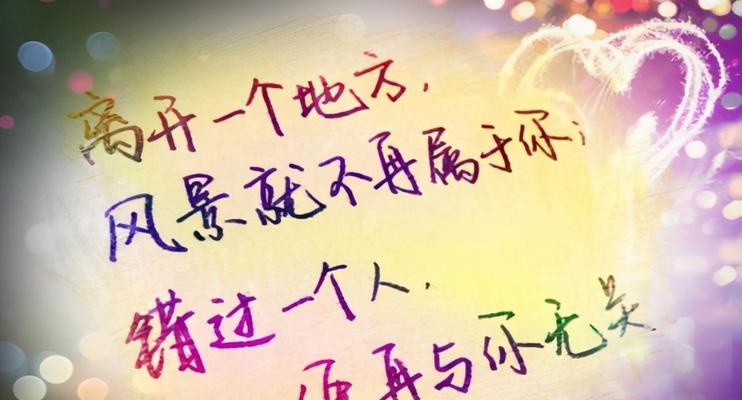 离开一个地方，
风景就不再属于你；
错过一个人，
便再与你无关.